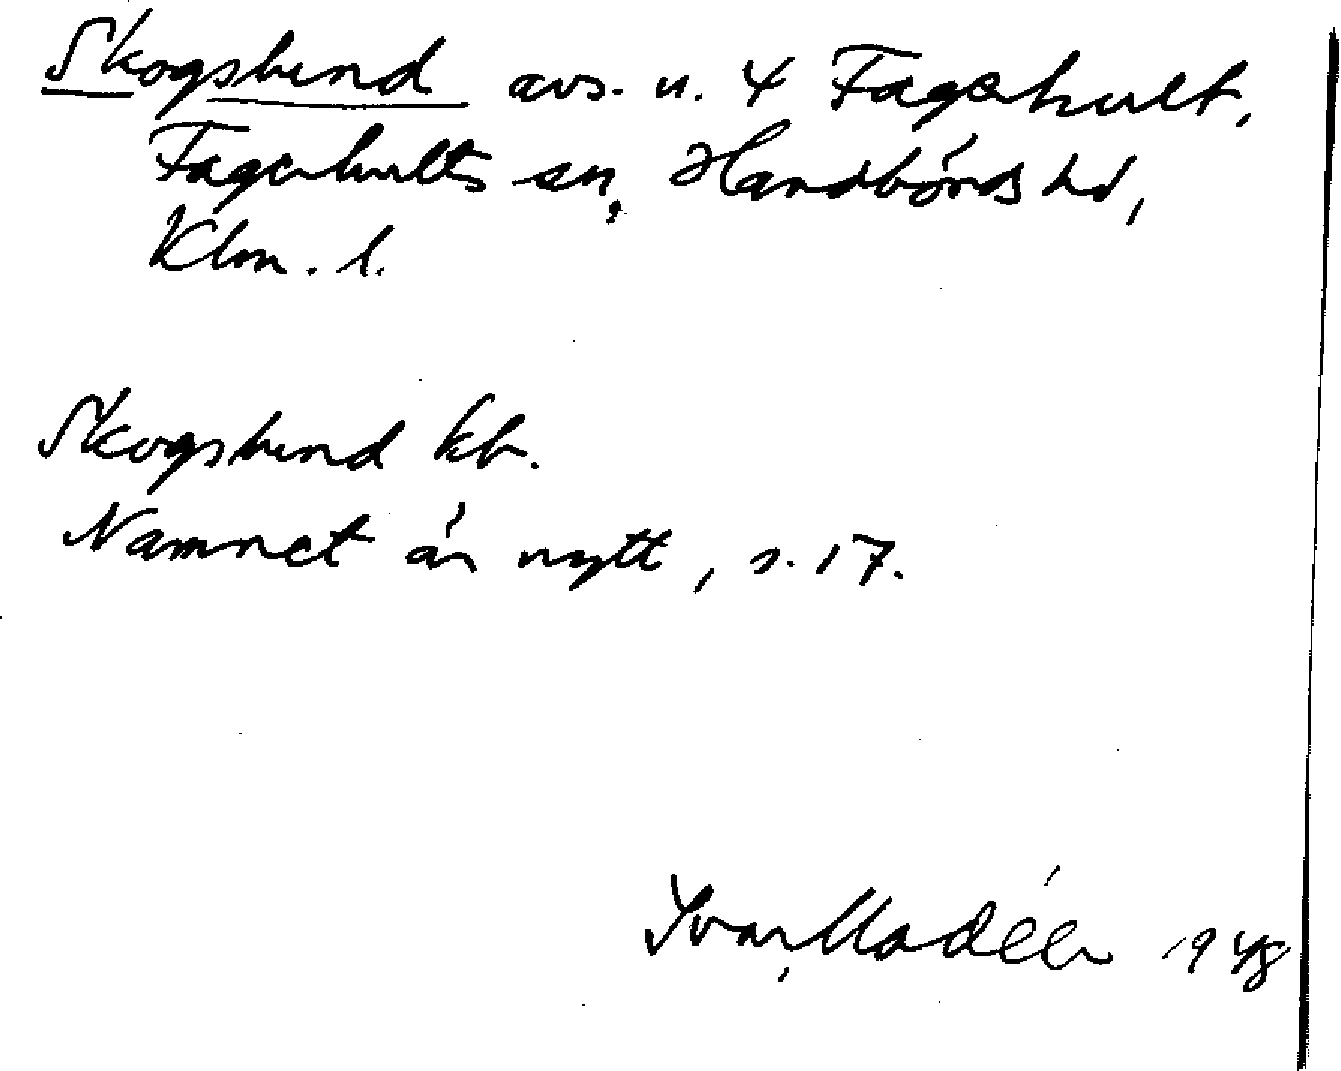 Skogslund avs. u. 4 Fagerhult,
Fagerhults sn, Handbörds hd,
Klm. l.
Skogslund kb.
Namnet är nytt, s. 17.
Ivar Modéer 1948